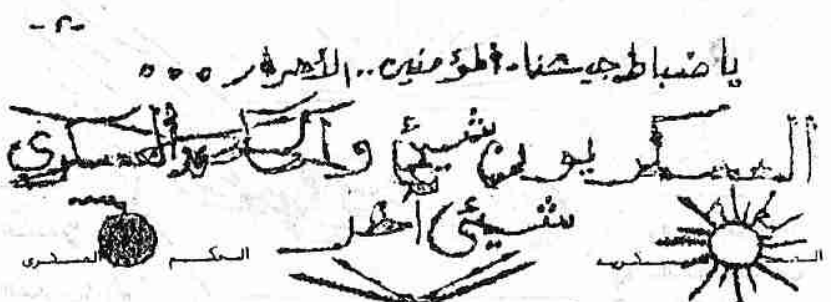 -٢-
يا ضباط جيشنا المؤمنين.. الأحرار ...
العسكريون شيئ والحكم العسكري
شيئ آخر
الحكم العسكرى